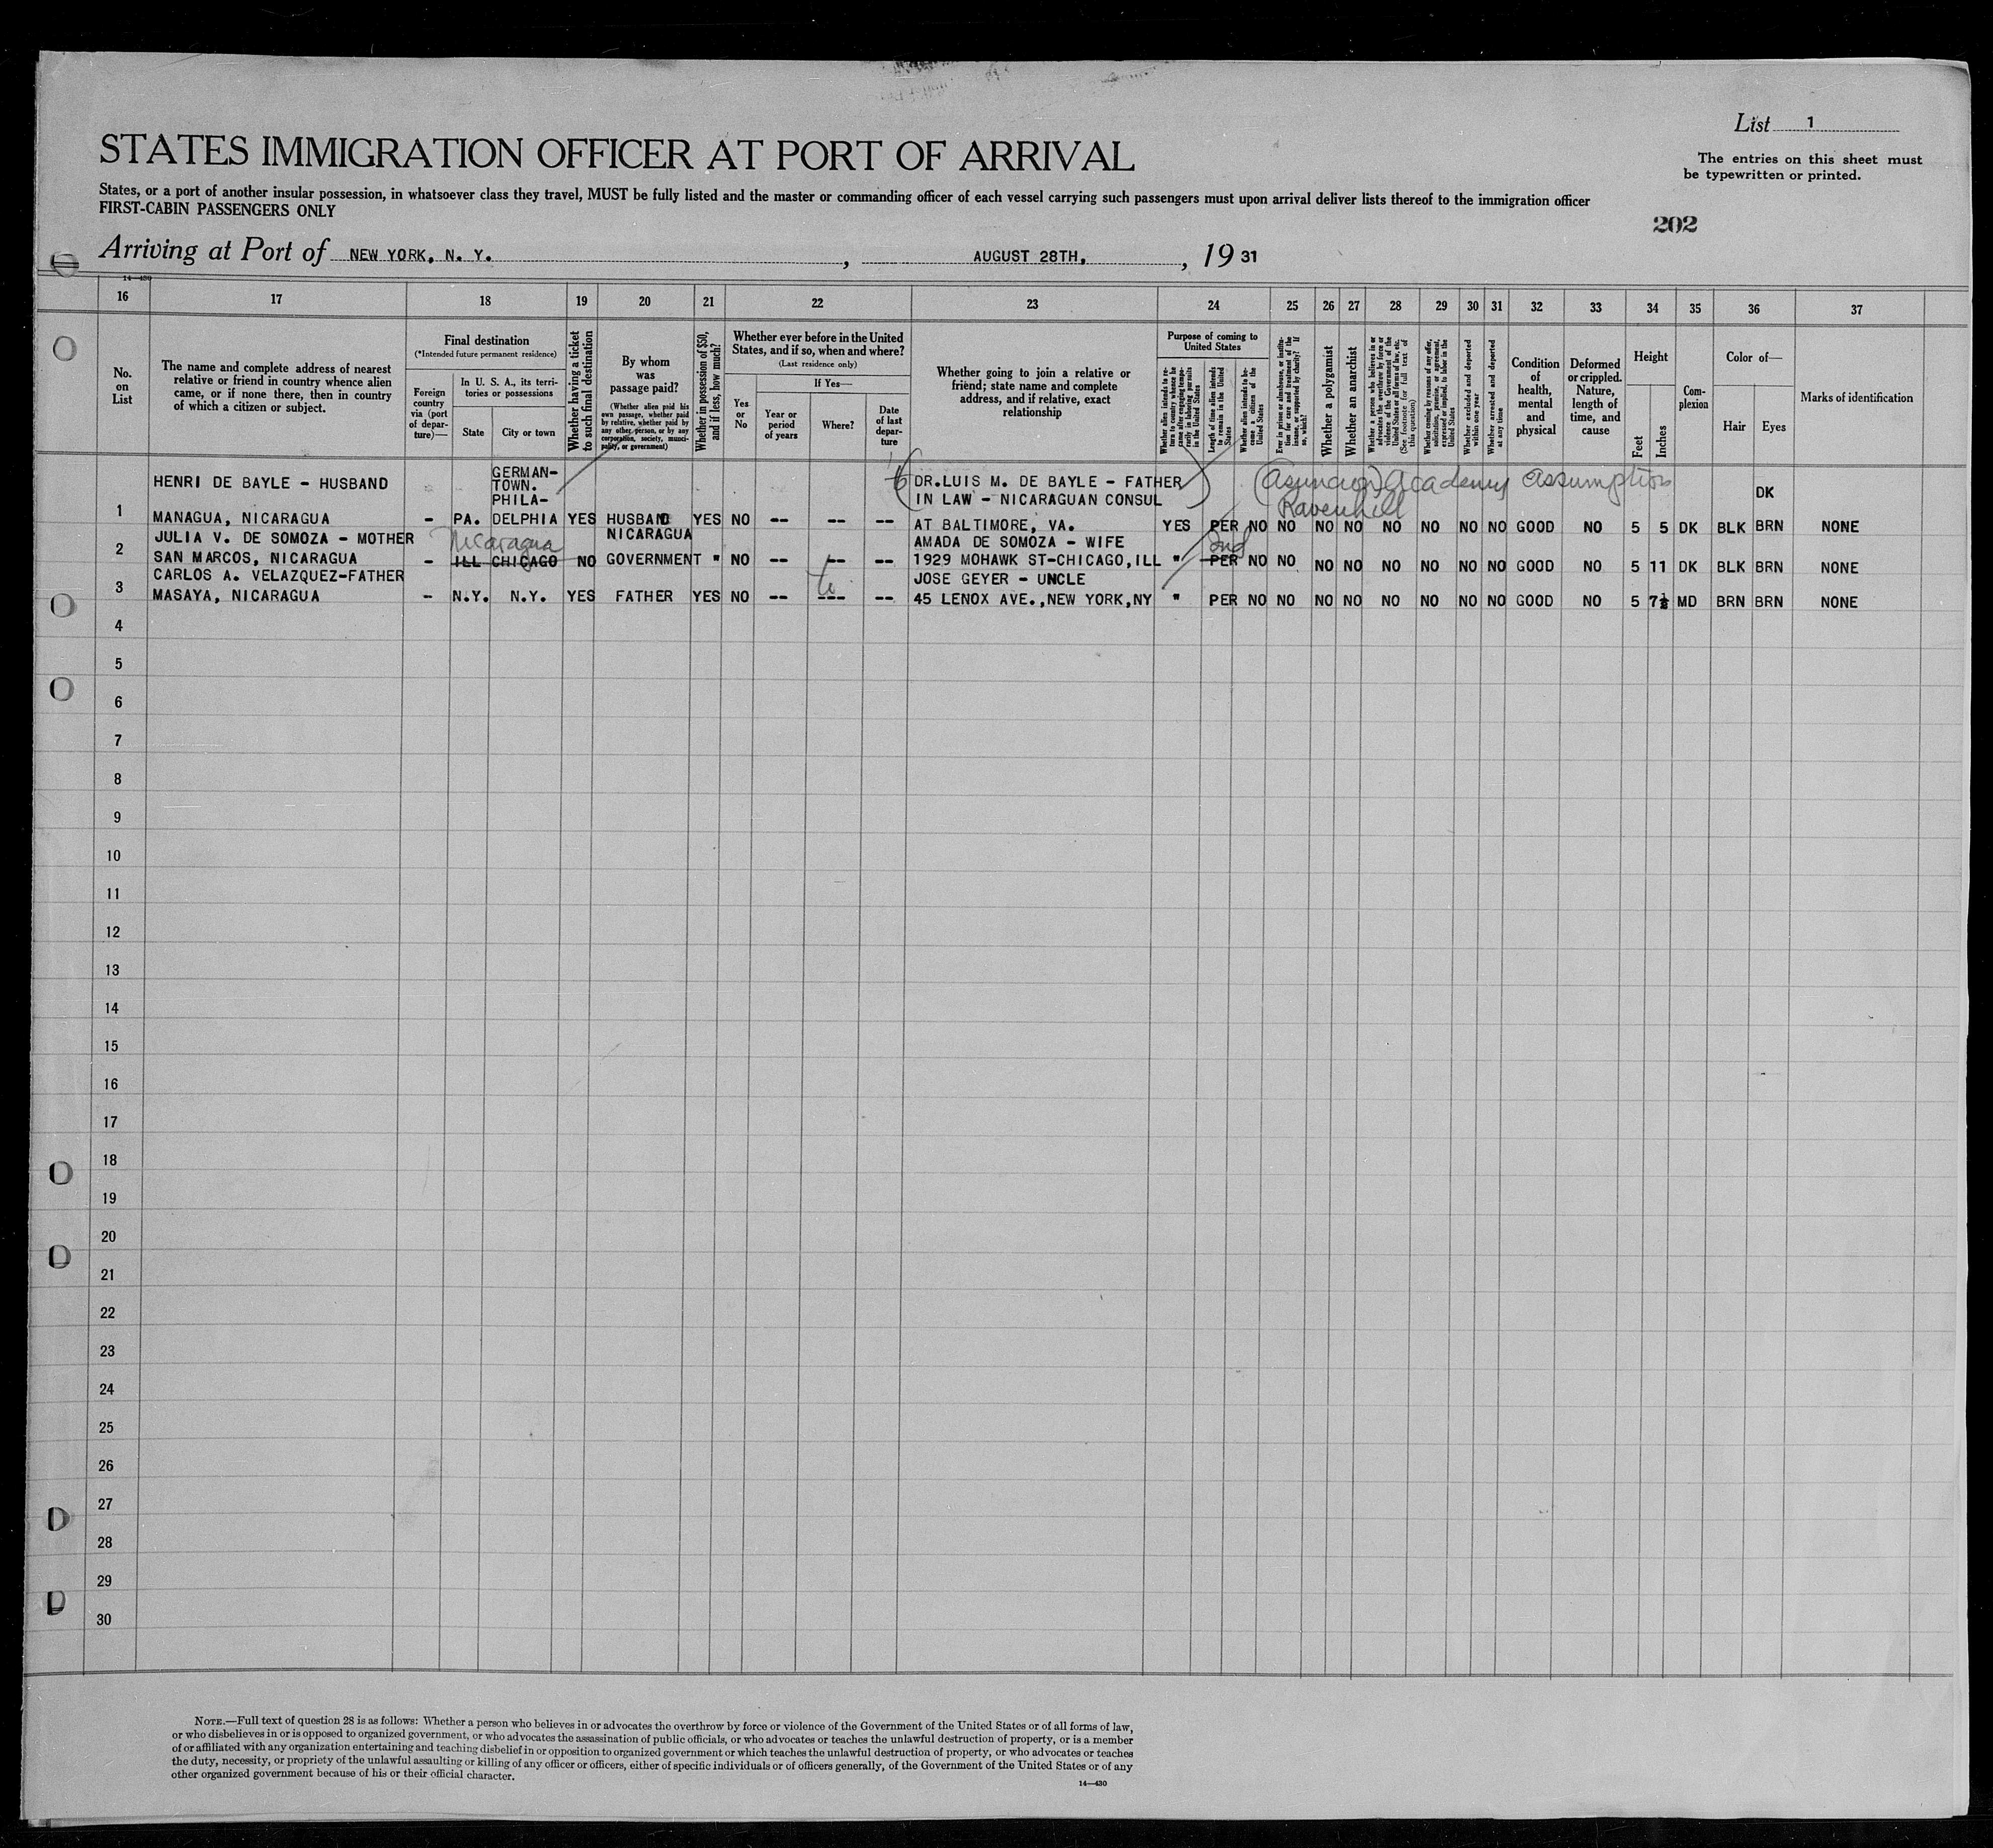 List 1
STATES IMMIGRATION OFFICER AT PORT OF ARRIVAL
The entries on this sheet must
be typewritten or printed.
States, or a port of another insular possession, in whatsoever class they travel, MUST be fully listed and the master or commanding officer of each vessel carrying such passengers must upon arrival deliver lists thereof to the immigration officer
FIRST-CABIN PASSENGERS ONLY
202
Arriving at Port of NEW YORK, N. Y. , AUGUST 28TH, , 19 31
14—430
16 17 18 19 20 21 22 23 24 25 26 27 28 29 30 31 32 33 34 35 36 37
No. on List
The name and complete address of nearest
relative or friend in country whence alien
came, or if none there, then in country
of which a citizen or subject.
Final destination
(*Intended future permanent residence)
Foreign country via (port of departure)—
In U. S. A., its territories or possessions
State
City or town
Whether having a ticket to such final destination
By whom was passage paid?
(Whether alien paid his own passage, whether paid by relative, whether paid by any other person, or by any corporation, society, municipality, or government)
Whether in possession of $50, and if less, how much?
Whether ever before in the United
States, and if so, when and where?
(Last residence only)
Yes or No
If Yes—
Year or period of years
Where?
Date of last departure
Whether going to join a relative or
friend; state name and complete
address, and if relative, exact
relationship
Purpose of coming to
United States
Whether alien intends to return to country whence he came after engaging temporarily in laboring pursuits in the United States
Length of time alien intends to remain in the United States
Whether alien intends to become a citizen of the United States
Ever in prison or almshouse, or institution for care and treatment of the insane, or supported by charity? If so, which?
Whether a polygamist
Whether an anarchist
Whether a person who believes in or advocates the overthrow by force or violence of the Government of the United States or all forms of law, etc. (See footnote for full text of this question)
Whether coming by reasons of any offer, solicitation, promise, or agreement, expressed or implied, to labor in the United States
Whether excluded and deported within one year
Whether arrested and deported at any time
Condition of health, mental and physical
Deformed or crippled. Nature, length of time, and cause
Height
Feet
Inches
Complexion
Color of—
Hair
Eyes
Marks of identification
(Asuncion) Academy Assumption
Ravenhill
HENRI DE BAYLE - HUSBAND GERMAN-TOWN. PHILA- DR.LUIS M. DE BAYLE - FATHER IN LAW - NICARAGUAN CONSUL DK
1 MANAGUA, NICARAGUA - PA. DELPHIA YES HUSBAND YES NO -- -- -- AT BALTIMORE, VA. YES PER NO NO NO NO NO NO NO NO GOOD NO 5 5 DK BLK BRN NONE
JULIA V. DE SOMOZA - MOTHER Nicaragua NICARAGUA AMADA DE SOMOZA - WIFE
2 SAN MARCOS, NICARAGUA - ILL CHICAGO NO GOVERNMENT " NO -- -- -- 1929 MOHAWK ST-CHICAGO, ILL " PER NO NO NO NO NO NO NO NO GOOD NO 5 11 DK BLK BRN NONE
CARLOS A. VELAZQUEZ-FATHER JOSE GEYER - UNCLE
3 MASAYA, NICARAGUA - N.Y. N.Y. YES FATHER YES NO -- --- -- 45 LENOX AVE.,NEW YORK,NY " PER NO NO NO NO NO NO NO NO GOOD NO 5 7½ MD BRN BRN NONE
4
5
6
7
8
9
10
11
12
13
14
15
16
17
18
19
20
21
22
23
24
25
26
27
28
29
30
NOTE.—Full text of question 28 is as follows: Whether a person who believes in or advocates the overthrow by force or violence of the Government of the United States or of all forms of law,
or who disbelieves in or is opposed to organized government, or who advocates the assassination of public officials, or who advocates or teaches the unlawful destruction of property, or is a member
of or affiliated with any organization entertaining and teaching disbelief in or opposition to organized government or which teaches the unlawful destruction of property, or who advocates or teaches
the duty, necessity, or propriety of the unlawful assaulting or killing of any officer or officers, either of specific individuals or of officers generally, of the Government of the United States or of any
other organized government because of his or their official character.
14—430